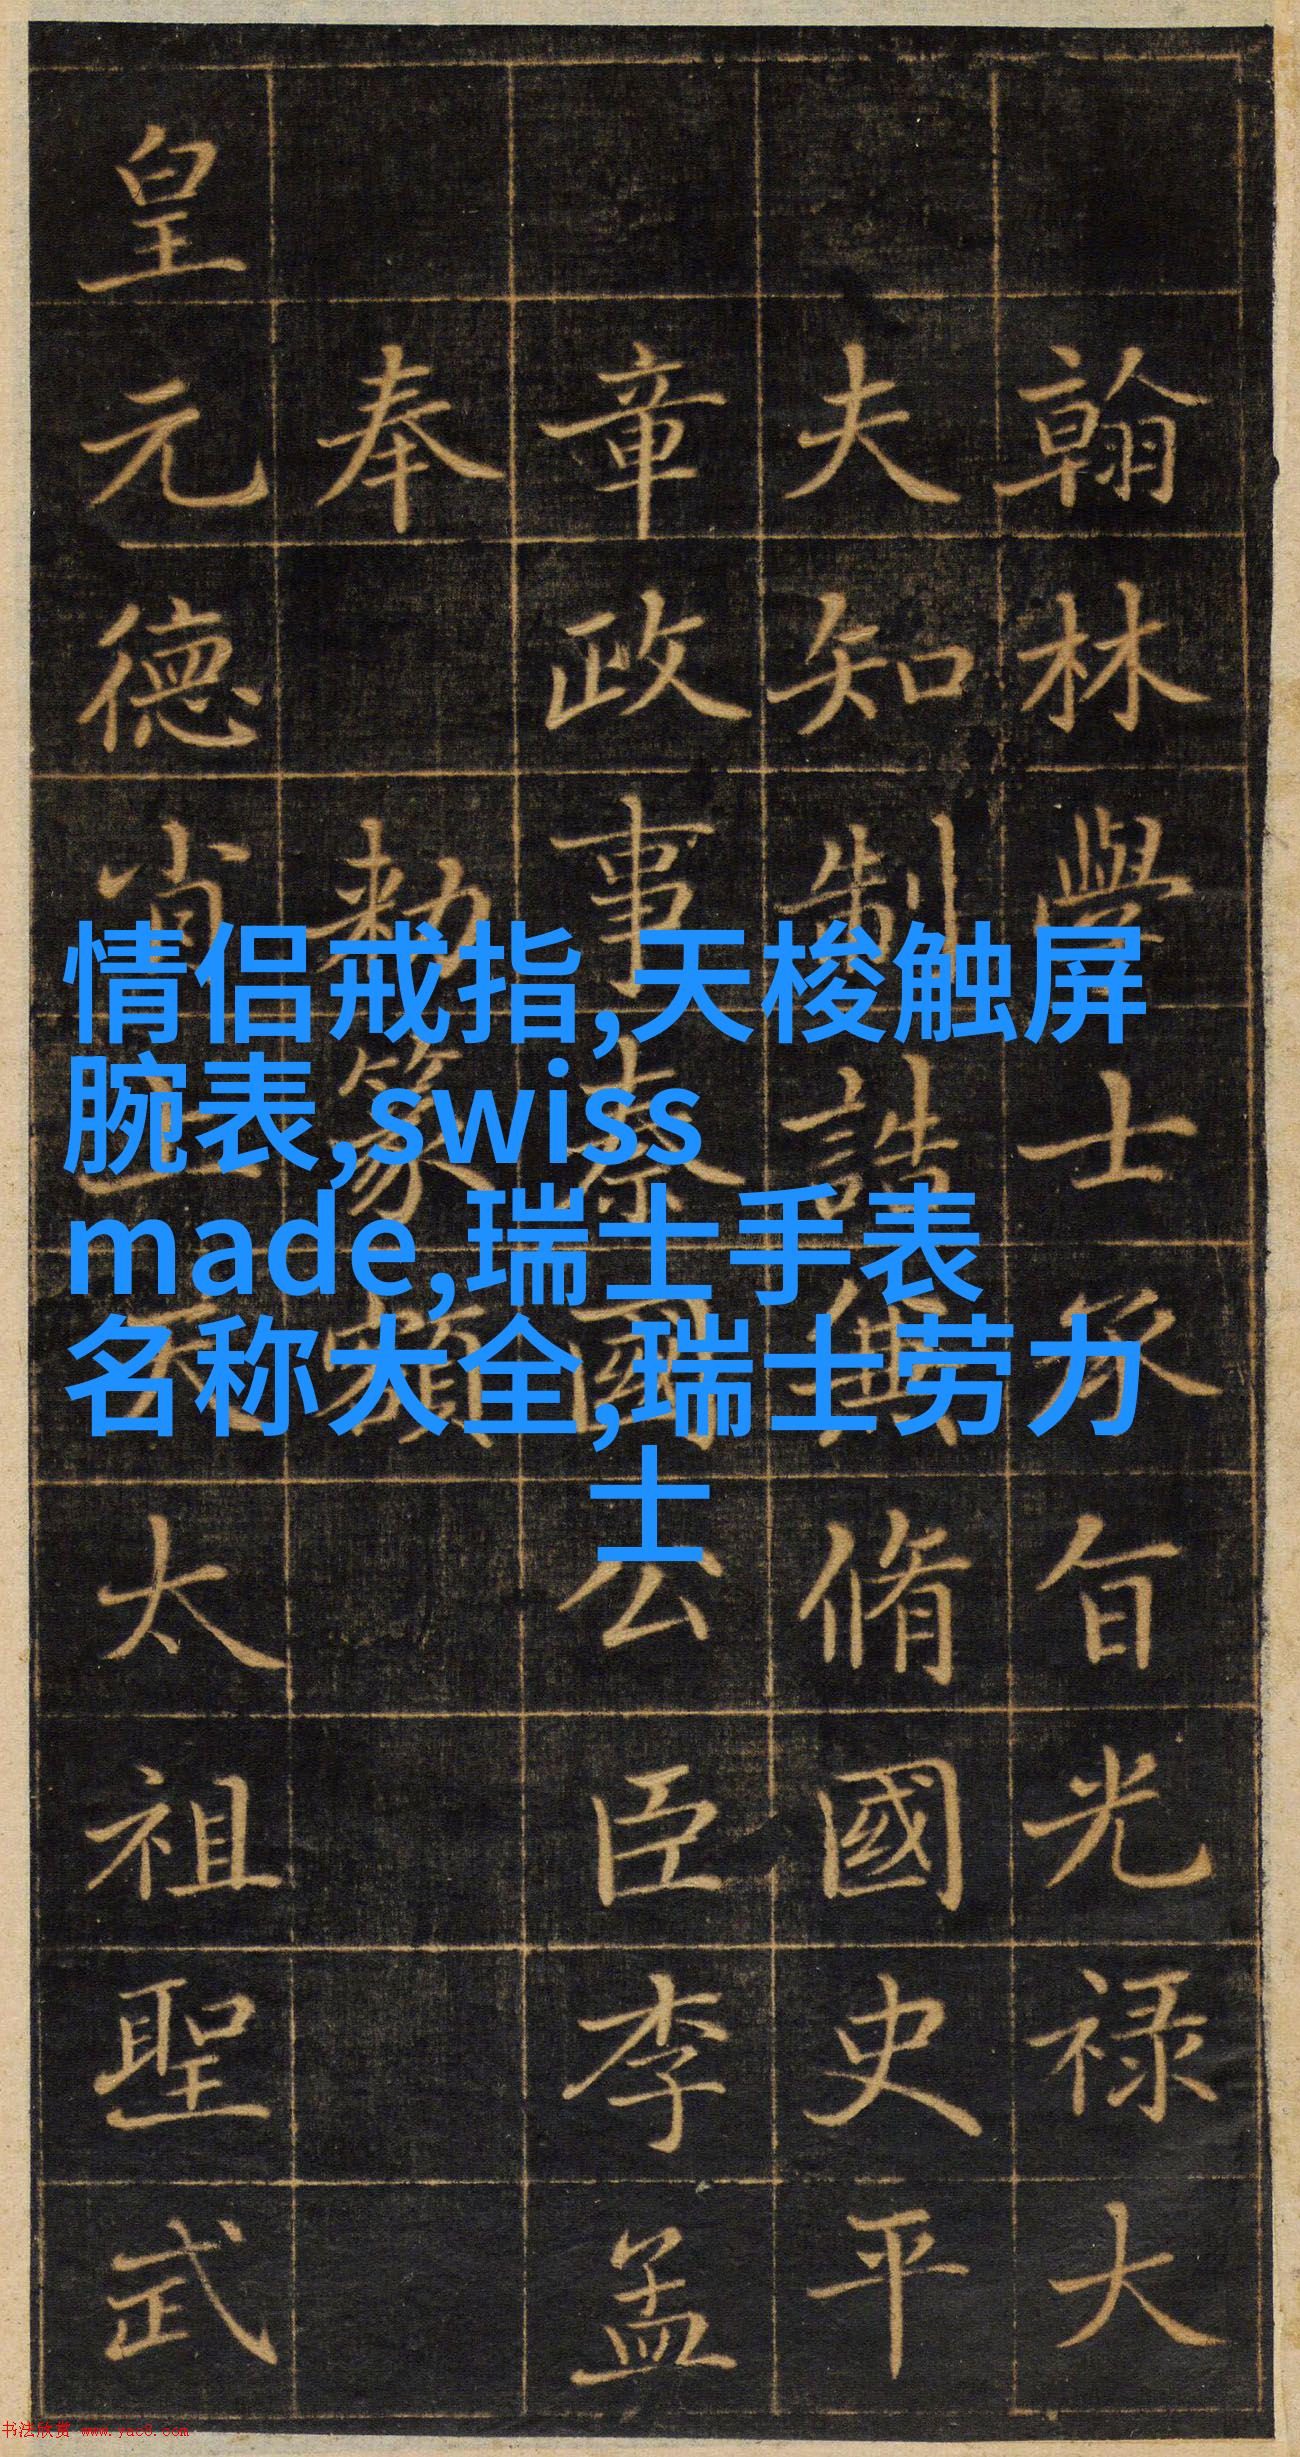 翰林學士承旨光禄大
夫知制誥兼脩國史平
章政事秦國公臣李孟
奉勅篆額
皇元德肖天太祖聖武
情侣戒指,天梭触屏
腕表,swiss
made,瑞士手表
名称大全,瑞士劳力
士
书法欣赏 www.yac8.com